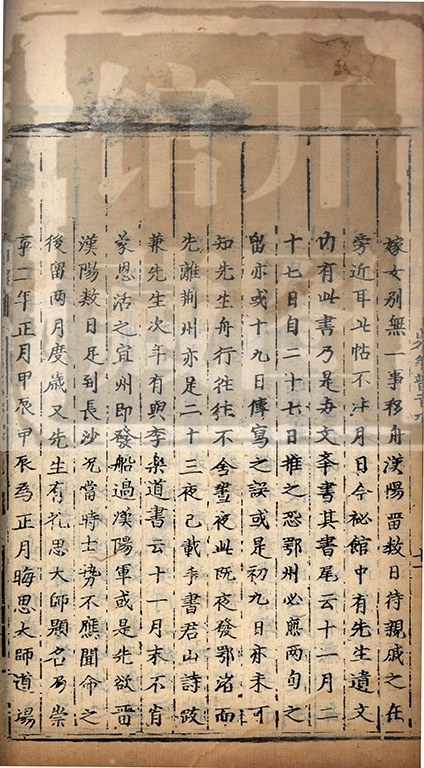 嫁女别無一事移舟漢陽畱数日待親戚之在
旁近耳此帖不沐月日今祕館中有先生遺文
内有此書乃是与文季書其書尾云十一月二
十七日自二十七日推之恐鄂州必無兩旬之
留亦或十九日傳寫之誤或是初九日亦未可
知先生舟行往往不舍晝夜此既夜發鄂渚而
先離荆州亦是二十三夜已載季書君山詩跋
兼先生次年有與李樂道書云十一月末不肯
蒙恩活之宜州即發船過漢陽軍或是先欲畱
漢陽数日足到長沙况當時士势不應聞命之
後留兩月度歳又先生有花思大師題名乃崇
寜二年正月甲辰甲辰為正月晦思大師道場